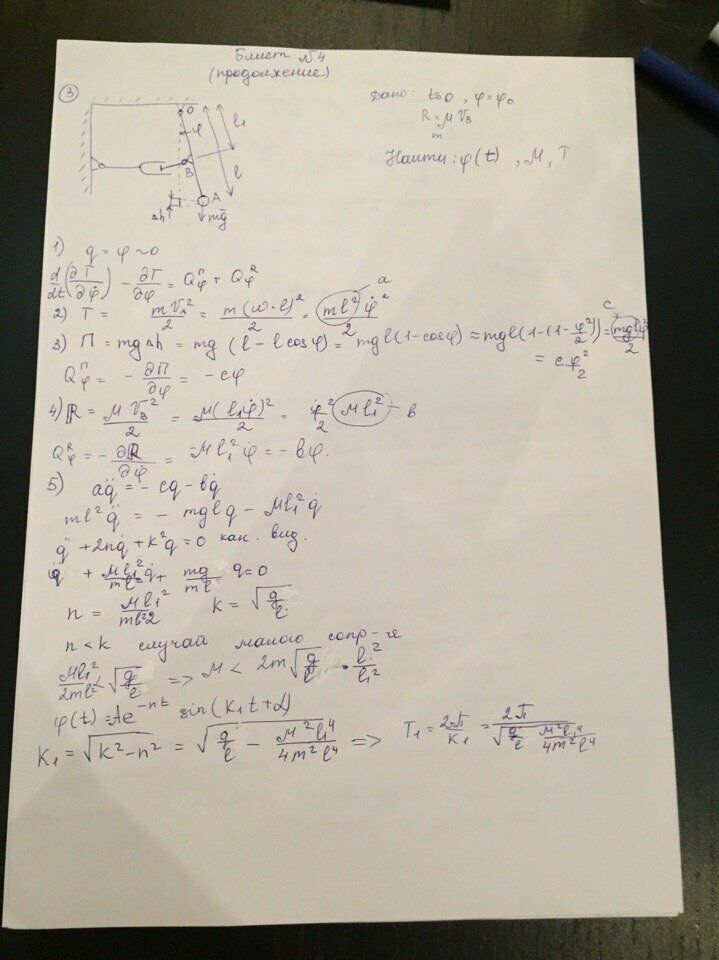 Билет №4
(продолжение)
③
Дано: t=0, φ=φ₀
R=μV_B
m
Найти: φ(t), μ, T
O
φ
l₁
l
B
A
Δh
mg
1) q = φ ~ 0
d/dt(∂T/∂φ̇) - ∂T/∂φ = Q_φ^П + Q_φ^R
a
2) T = mV_A²/2 = m(ω·l)²/2 = ml²/2 φ̇²
c
3) П = mgΔh = mg(l - l cosφ) = mgl(1-cosφ) ≈ mgl(1-(1-φ²/2)) = mglφ²/2
= cφ²/2
Q_φ^П = -∂П/∂φ = -cφ
4) R = μV_B²/2 = μ(l₁φ̇)²/2 = φ̇²/2 (μl₁²) - в
Q_φ^R = -∂R/∂φ̇ = -μl₁²φ̇ = -вφ̇.
5) aq̈ = -cq - вq̇
ml²q̈ = -mglq - μl₁²q̇
q̈ + 2nq̇ + k²q = 0 кан. вид.
q̈ + μl₁²/ml² q̇ + mg/ml q = 0
n = μl₁²/ml²2 k = √(g/l)
n < k случай малого сопр-я
μl₁²/2ml² < √(g/l) => μ < 2m√(g/l) · l²/l₁²
φ(t) = Ae^(-nt) sin(k₁t+α)
k₁ = √(k²-n²) = √(g/l - μ²l₁⁴/4m²l⁴) => T₁ = 2π/k₁ = 2π/√(g/l μ²l₁⁴/4m²l⁴)